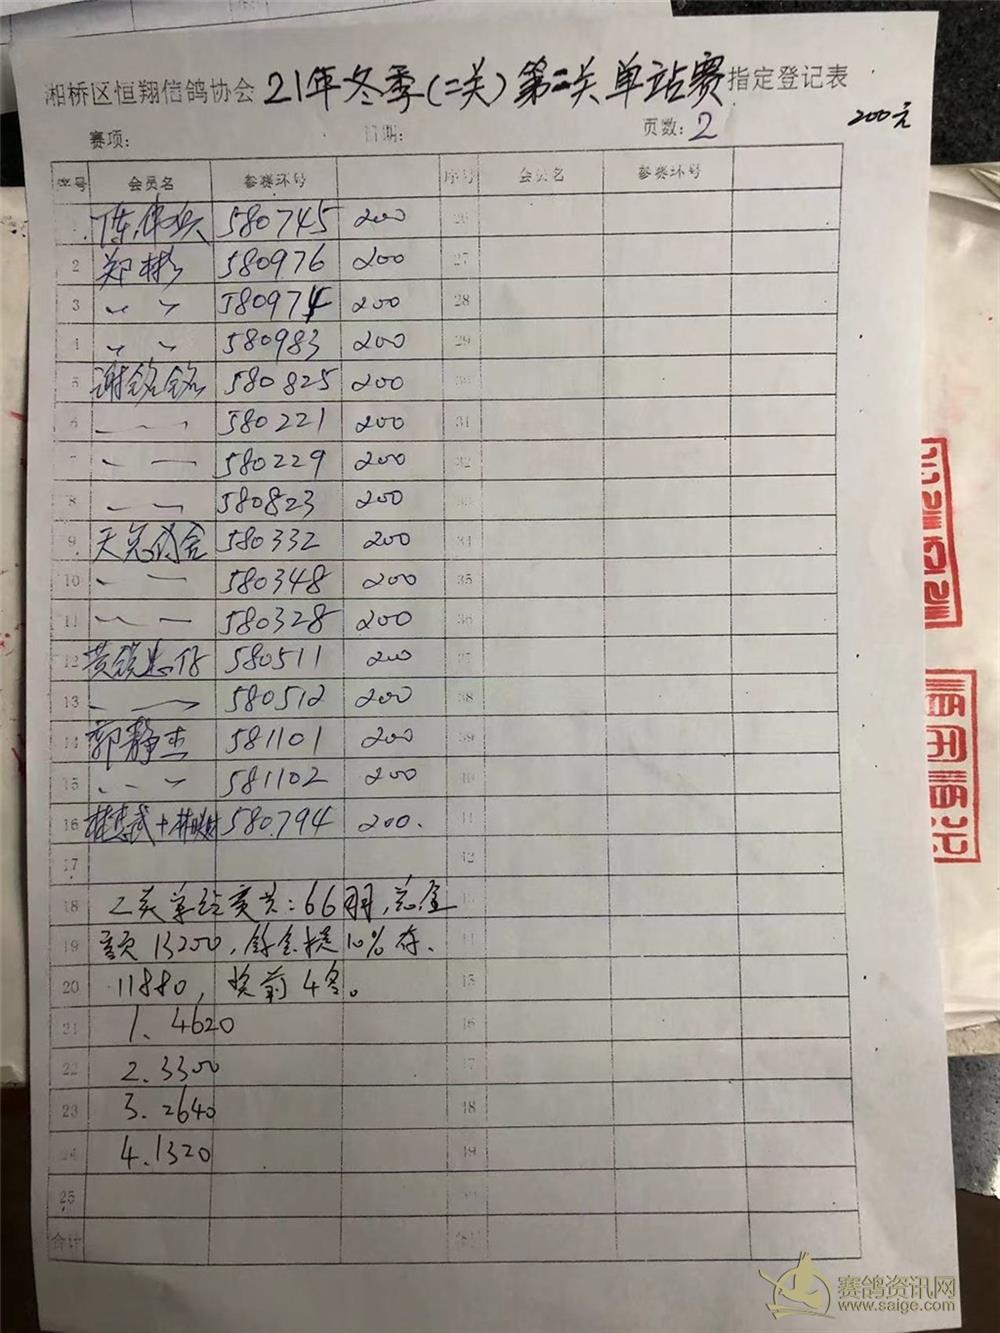 湘桥区恒翔信鸽协会 21年冬季(二关)第二关单站赛 指定登记表
200元
赛项: 日期: 页数: 2
序号 会员名 参赛环号 序号 会员名 参赛环号
1 陈伟兵 580745 200 26
2 郑彬 580976 200 27
3 〃 〃 580974 200 28
4 〃 〃 580983 200 29
5 谢铭铭 580825 200 30
6 580221 200 31
7 580229 200 32
8 580823 200 33
9 天宠鸽舍 580332 200 34
10 580348 200 35
11 580328 200 36
12 580511 200 37
13 580512 200 38
14 郭静杰 581101 200 39
15 〃 〃 581102 200 40
16 580794 200. 41
17 42
18 二关单站赛共:66羽,总金
19 额13200,余金提10%存. 44
20 11880,奖前4名。 45
21 1. 4620 46
22 2. 3300 47
23 3. 2640 48
24 4. 1320 49
25 50
合计 合计
赛鸽资讯网
www.saige.com